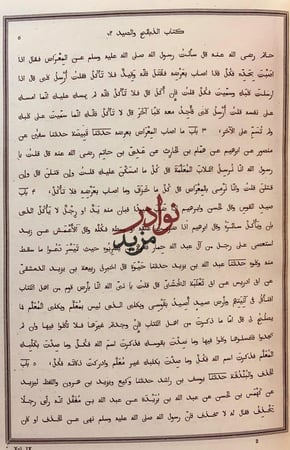 كتاب الذبائح والصيد ٧٢
حاتم رضى الله عنه قال سألت رسول الله صلى الله عليه وسلم عن المعراض فقال اذا
اصبت بحدّه فكل فاذا اصاب بعرضه فقتل فانّه وقيذ فلا تأكل فقلت أُرسل كلبى قال اذا
ارسلت كلبك وسمّيت فكل قلت فإن أكل قال فلا تأكل فانّه لم يمسك عليك انّما امسك
على نفسه قلت أُرسل كلبى فأجد معه كلبا آخر قال لا تأكل فانّك انّما سمّيت على كلبك
ولم تسمّ على الآخر، ٣ باب ما اصاب المعراض بعرضه حدثنا قبيصة حدثنا سفين عن
منصور عن ابرهيم عن همام بن الحارث عن عدى بن حاتم رضى الله عنه قال قلت يا
رسول الله انّا نرسل الكلاب المعلّمة قال كل ما امسكن عليك قلت وإن قتلن قال وإن
قتلن قلت وانّا نرمى بالمعراض قال كل ما خزق وما اصاب بعرضه فلا تأكل، ٤ باب
صيد القوس وقال الحسن وابرهيم فبان منه يد او رجل لا يأكل الذى
بان ويأكل سائره وقال ابرهيم كله وقال الأعمش عن زيد
استعصى على رجل من آل عبد الله حمار حيث تيسّر دعوا ما سقط
منه وكلوه حدثنا عبد الله بن يزيد حدثنا حيوة قال اخبرنى ربيعة بن يزيد الدمشقى
عن ابى ادريس عن ابى ثعلبة الخشنى قال قلت يا نبى الله انّا بأرض قوم من اهل الكتاب
افنأكل فى آنيتهم وبأرض صيد أصيد بقوسى وبكلبى الذى ليس بمعلّم وبكلبى المعلّم فما
يصلح لى قال امّا ما ذكرت من اهل الكتاب فإن وجدتم غيرها فلا تأكلوا فيها وإن لم
تجدوا فاغسلوها وكلوا فيها وما صدت بقوسك فذكرت اسم الله فكل وما صدت بكلبك
المعلّم فذكرت اسم الله فكل وما صدت بكلبك غير معلّم فادركت ذكاته فكل، ٥ باب
الخذف والبندقة حدثنا يوسف بن راشد حدثنا وكيع ويزيد بن هرون واللفظ ليزيد
عن كهمس بن الحسن عن عبد الله بن بريدة عن عبد الله بن مغفل انّه رأى رجلا
يخذف فقال له لا تخذف فإنّ رسول الله صلى الله عليه وسلم نهى عن الخذف او كان
نوادر
مزيد